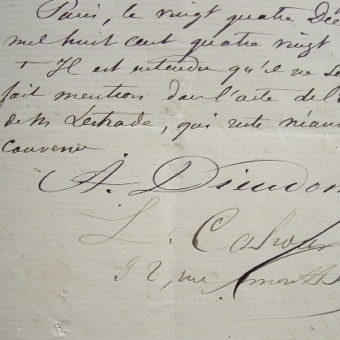 Paris, le vingt quatre Dé
mil huit cent quatre vingt
+ Il est entendu qu'il ne se
fait mention dans l'acte de l'
de Mr Lestrade, qui reste néan
convenu
A. Dieudon
L.
92, rue